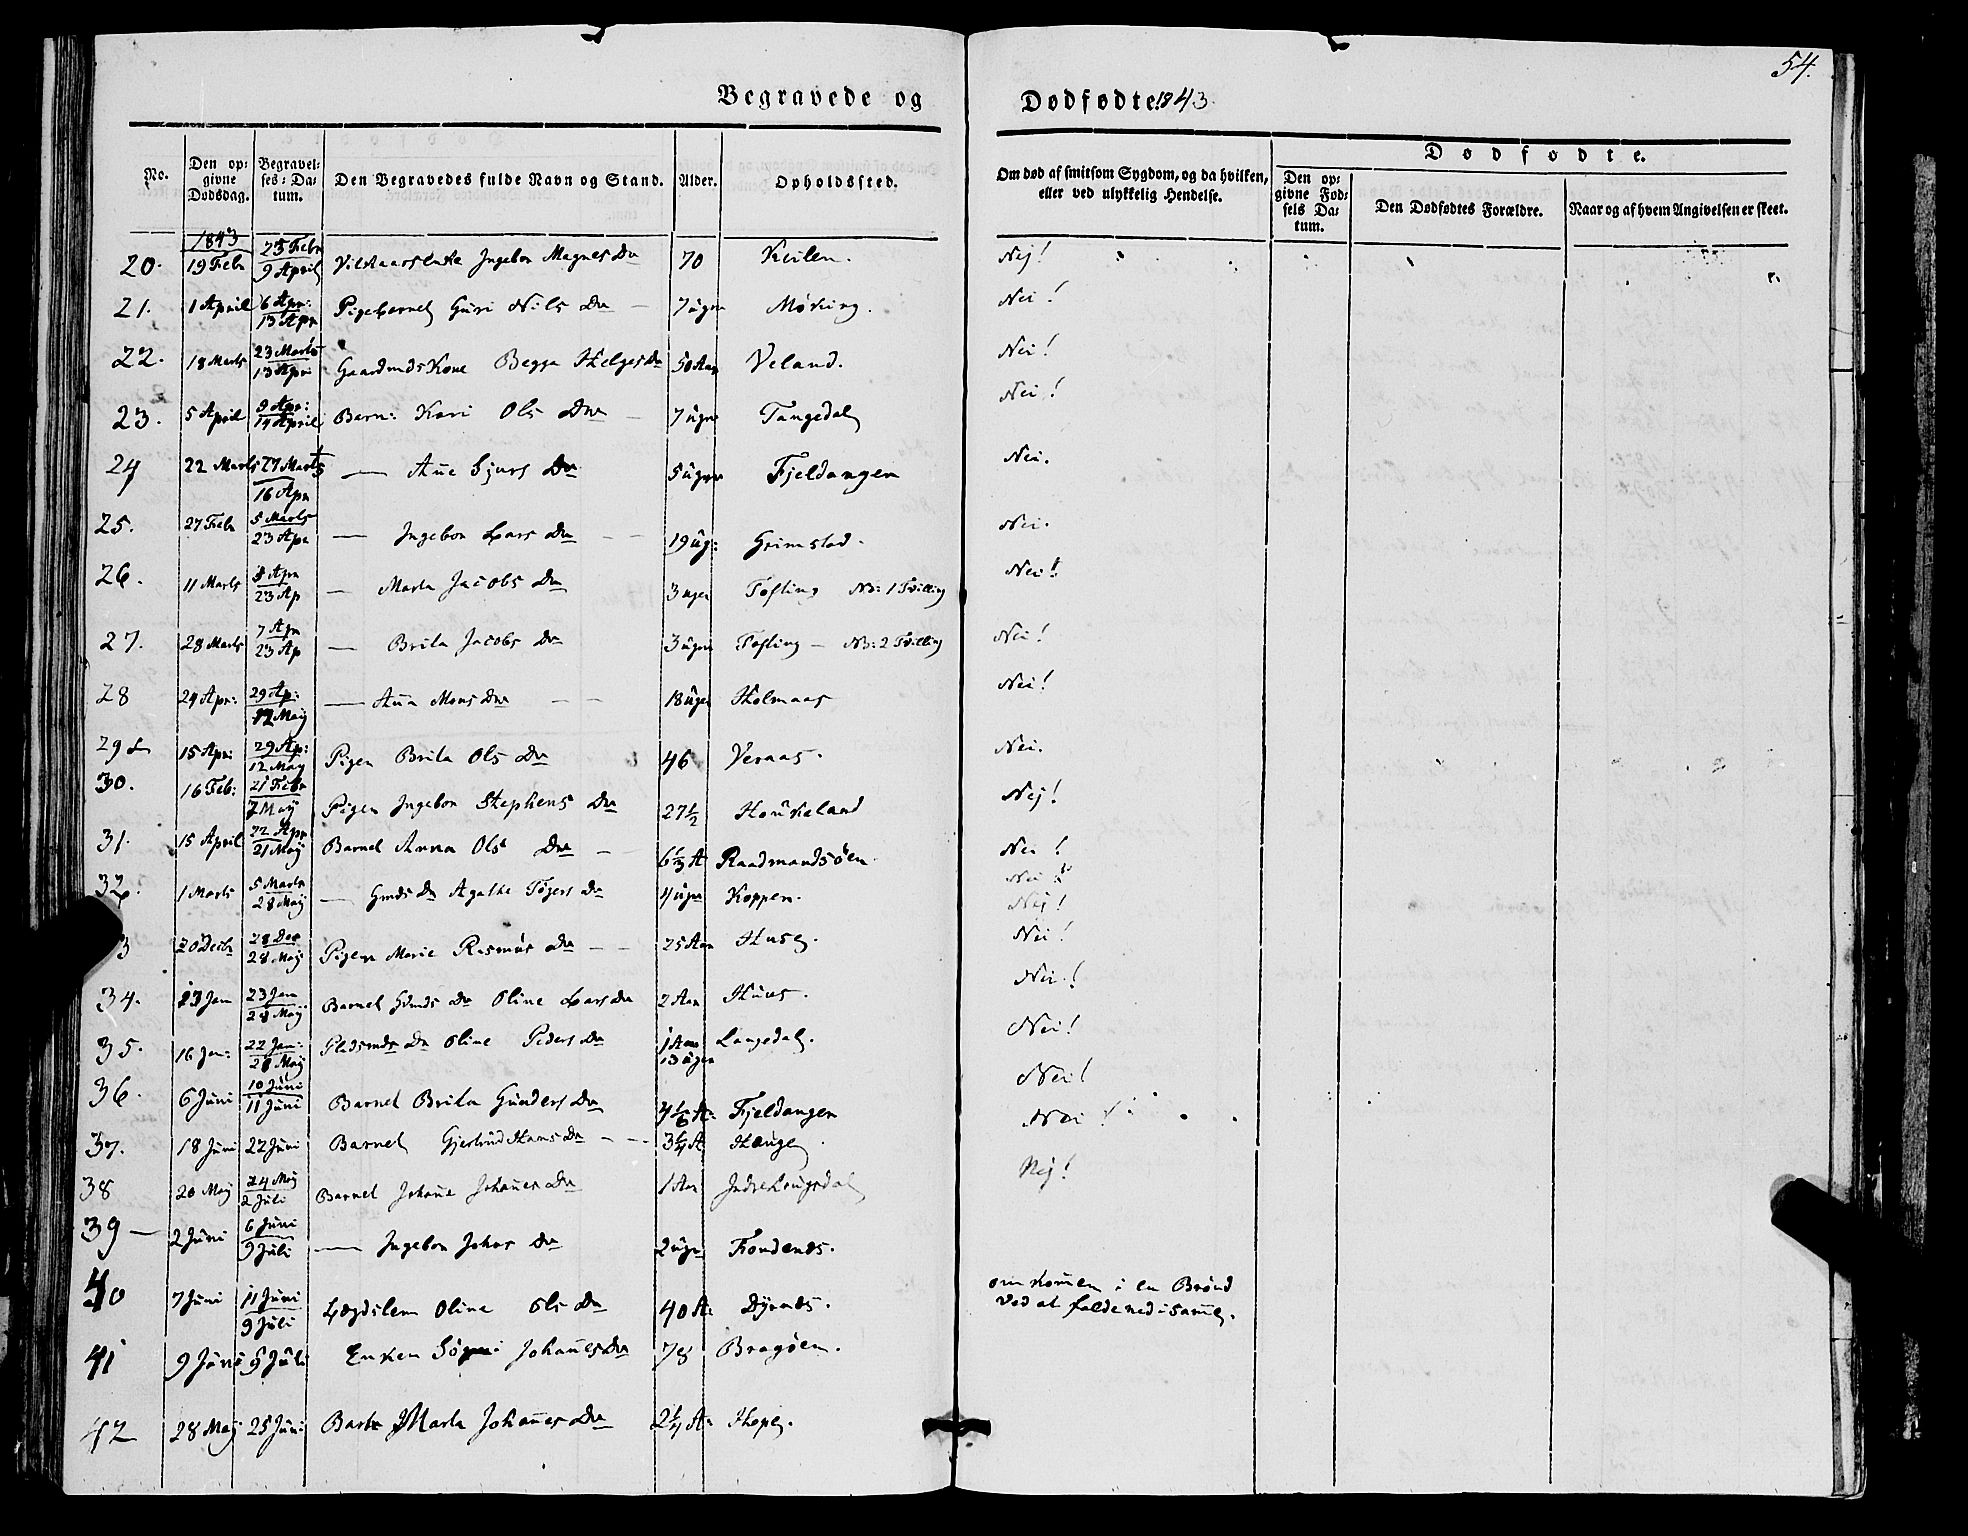 54.
Begravede og Dødfødte 1843.
No. | Den opgivne Dødsdag. | Begravelses-Datum. | Den Begravedes fulde Navn og Stand. | Alder. | Opholdssted. | Om død af smitsom Sygdom, og da hvilken, eller ved ulykkelig Hendelse. | Dødfødte. | Den opgivne Fødsels Datum. | Den Dødfødtes Forældre. | Naar og af hvem Angivelsen er skeet.
1843
20. 19 Febr 25 Febr 9 April Ingebor Magnes Dr 70 Kvilen. Nej!
21. 1 April 6 Apr: 13 Apr Pigebarnet Guri Nils Dr 7 uger Møking. Nei!
22. 18 Marts 23 Marts 13 Apr Gaardmds Kone Begga Helges Dr 50 Aar Veland. Nei!
23. 5 April 9 Apr: 14 April Barn: Kari Ols Dr 7 uger Tangedal Nei!
24 22 Marts 27 Marts 16 Apr — Añe Sjurs Dr 5 uger Fjeldangen Nei.
25. 27 Febr 5 Marts 23 Apr — Ingebor Lars Dr 19 ug: Grimstad. Nei.
26. 11 Marts 8 Apr 23 Ap — Marta Jacobs Dr 3 uger Tofting No: 1 Tvilling Nei!
27. 28 Marts 7 Apr 23 Ap — Brita Jacobs Dr 3 uger Tofting — No: 2 Tvilling Nei!
28 24 Apr: 29 Ap: 12 Maij — Aña Mons Dr 18 uger Holmaas Nei!
29 15 Apr: 29 Ap: 12 May Pigen Brita Ols Dr 46 Veraas. Nei.
30. 16 Feb: 21 Febr 7 Maij Pigen Ingebor Stephens Dr 27½ Houkeland Nej!
31. 15 April 22 Apr 21 Maij Barnet Anna Ols Dr 6⅓ A Raadmandsøen. Nei!
32. 1 Marts 5 Marts 28 Maij — Gmds Dr Agathe Dr 4 uger Koppen. Nei!
Nej!
3 20 Decbr 28 Dec 28 Maij Pigen Marie Rasmus Dr 25 Aar Nei!
34. 23 Jan 28 Maij Barnet Oline Lars Dr 2 Aar Nei!
35. 16 Jan: 22 Jan: 28 Maij Pladsmds Dr Oline Peders Dr 1 Aar 13 uger Langedal. Nei!
36. 6 Juni 10 Juni 11 Juni Barnet Brita Gunders Dr 4⅙ A: Fjeldangen Nei!
37. 18 Juni 22 Juni Barnet Gjertrud Hans Dr 3¼ A Hauge Nei!
38 20 Maij 24 Maij 2 Juli Barnet Johañe Johañes Dr 1 Aar Nej!
39 — 2 Juni 6 Juni 9 Juli — Ingebor Johns Dr 2 uger
40 7 Juni 11 Juni 9 Juli Lægdslem Oline Ols Dr 40 A: omkom̃en i en Brønd
ved at falde ned i sam̃e.
41 9 Juni 9 Juli Enken Johañes Dr 78 Bragøen.
42 28 Maij 25 Juni Marta Johañes Dr 2¼ A: Hope.